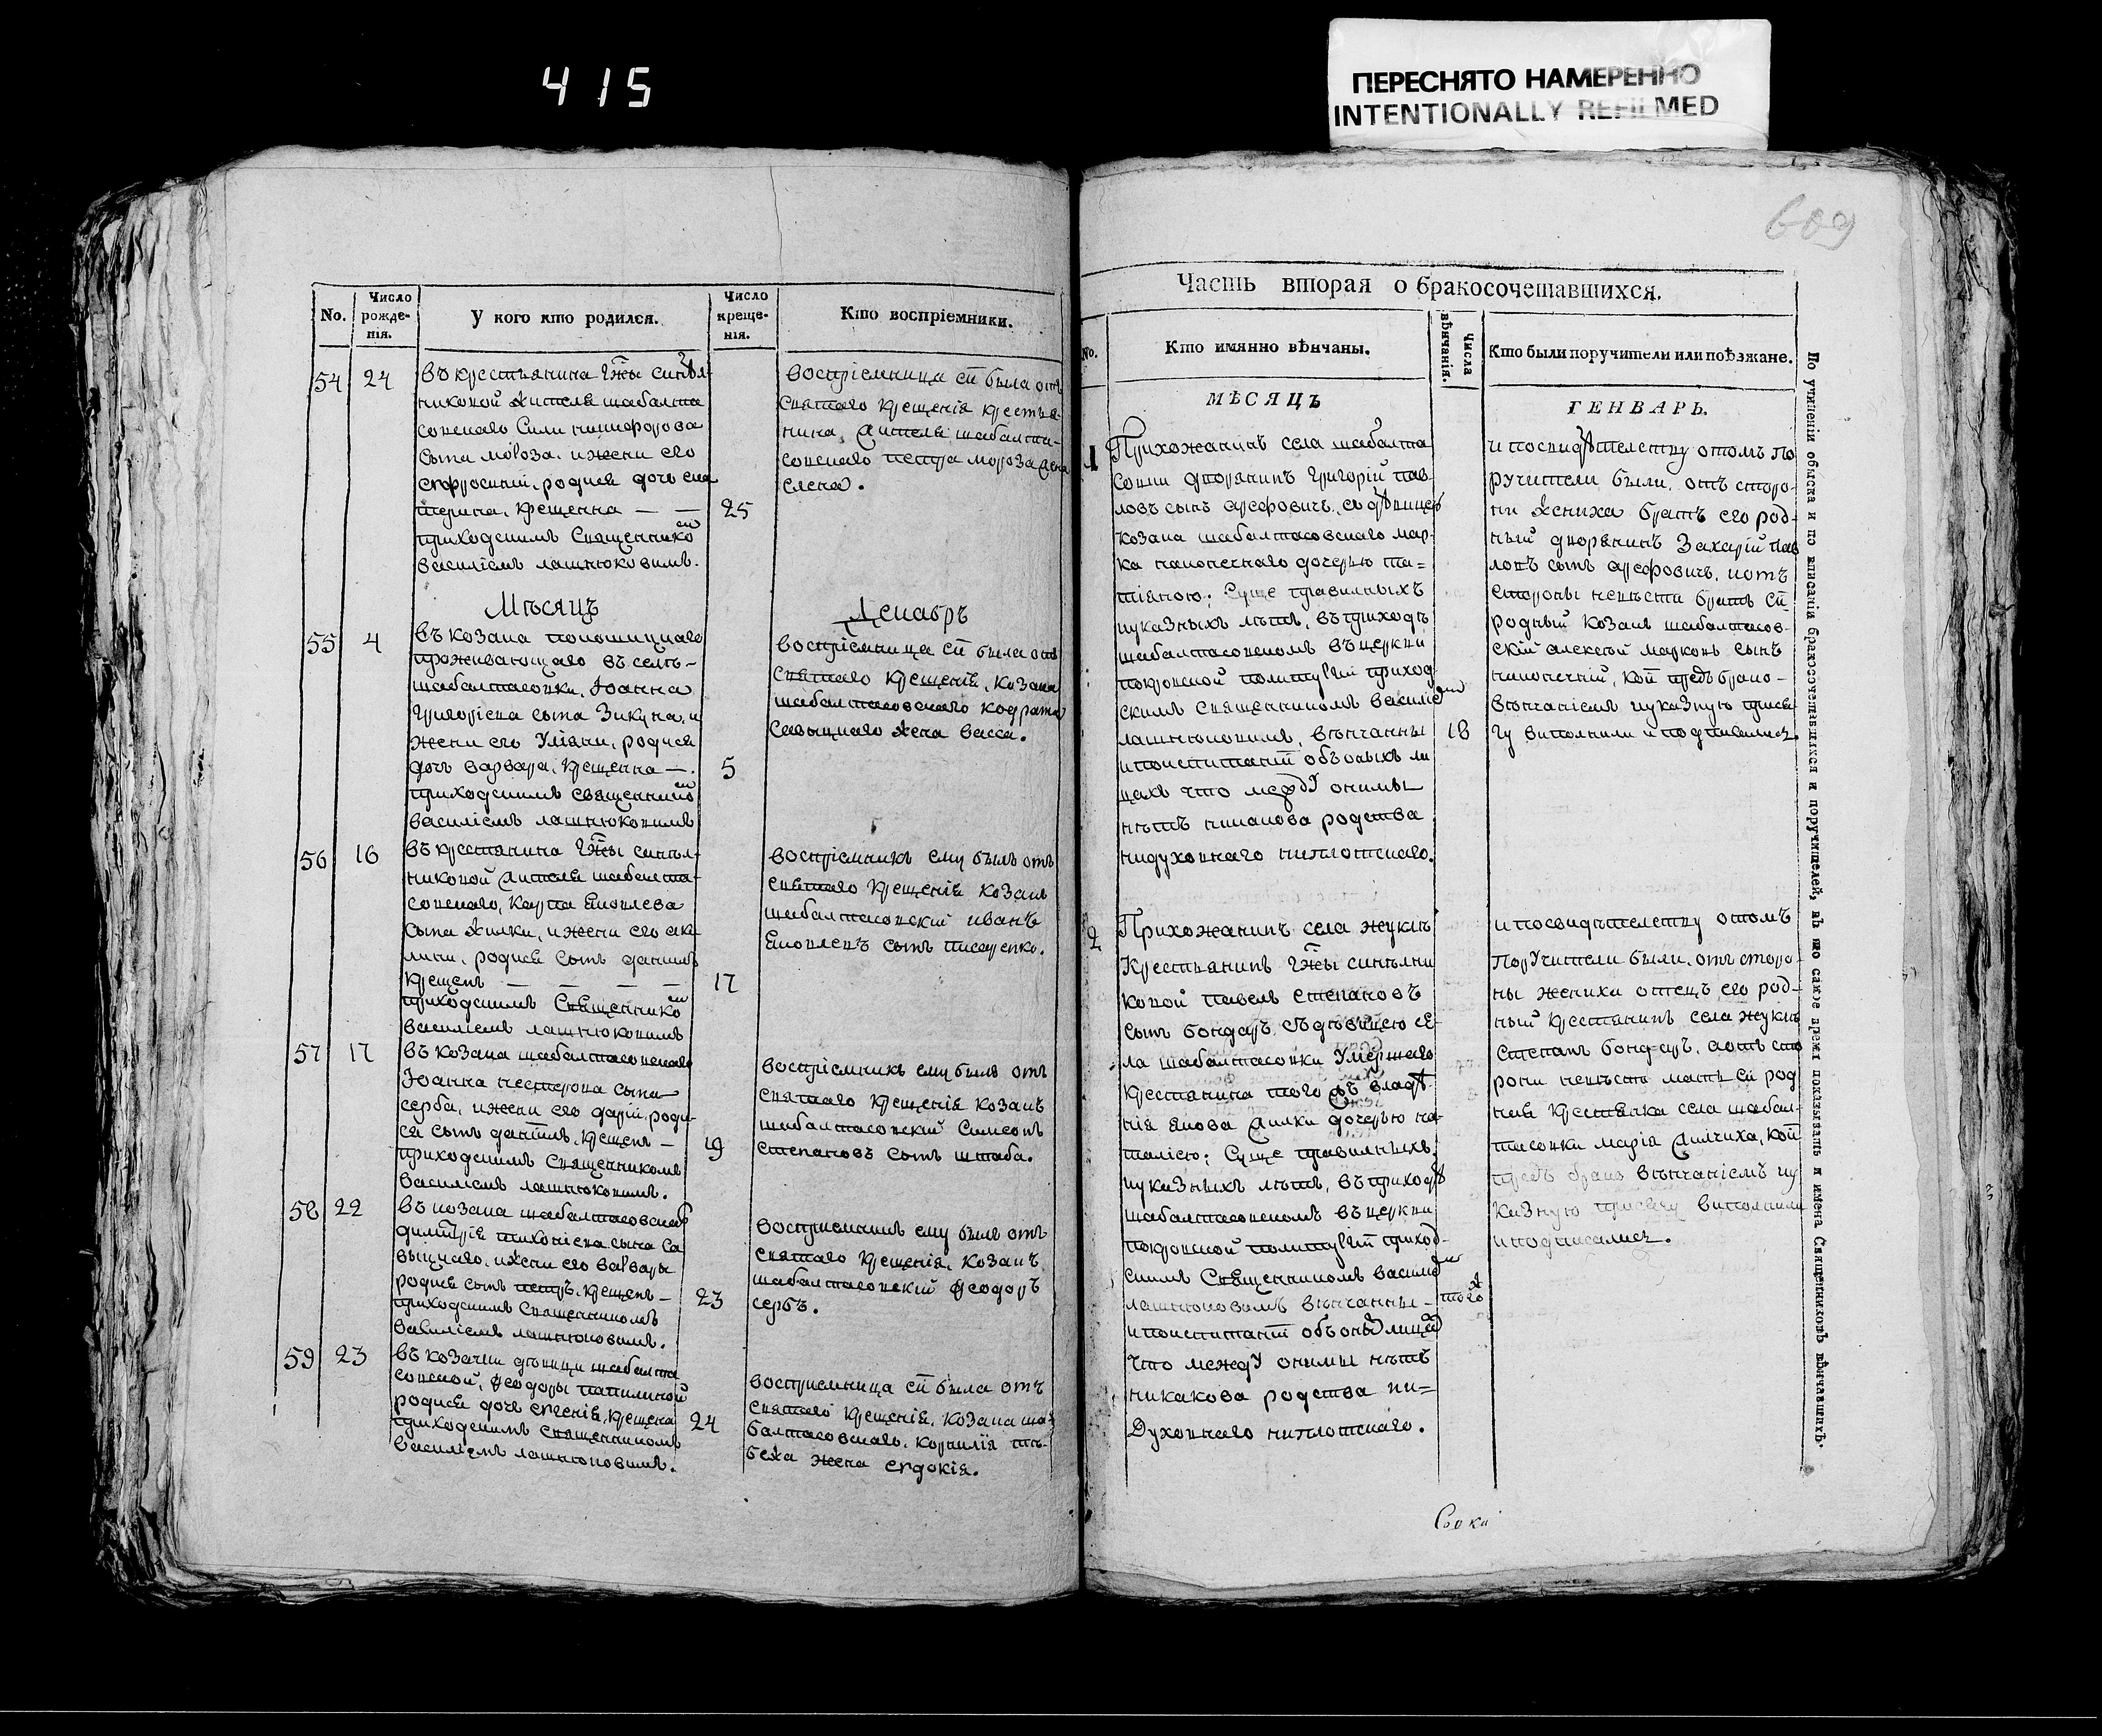 415
ПЕРЕСНЯТО НАМЕРЕННО
INTENTIONALLY REFILMED
609
No.
Число рожденія.
У кого кто родился.
Число крещенія.
Кто воспріемники.
54 24
въ крестьянина Гжи синѣл-
никовой жителя шабалта
совскаго Сили никифорова
сына мороза. и жени его
евфросиніи, родися дочь ека
терина, крещенна — — 25
приходскимъ Священнико
василіемъ лашнюковимъ.
воспріемница ей была отъ
святаго крещенія крестья-
нина, жителя шабалта-
совскаго петра мороза жена
елена.
Мѣсяцъ
Декабръ
55 4
въ козака
проживающаго въ селѣ-
шабалтасовки, Іоанна
Григоріева сына Зикуна, и
жени его Уліяни, родися
дочъ варвара, крещенна —. 5
приходскимъ священнико
василіемъ лашнюковимъ
воспріемница ей была отъ
святаго крещенія, козака
шабалтасовскаго кодрата
савицкаго жена васса.
56 16
въ крестянина Гжы синѣл-
никовой жителя шабелта-
совскаго, Карпа Яковлева
сына жилки, и жени его аки
лини, родися сынъ даниилъ
крещенъ — — — — 17
приходскимъ Священнико
василіемъ лашнюковимъ
воспріемникъ ему былъ отъ
святаго крещенія козакъ
шабалтасовскій иванъ
Яковлевъ сынъ писаренко.
57 17
въ козака шабалтасовскаго
Іоанна нестерова сына
серба, и жени его даріи, роди-
ся сынъ даніилъ, крещенъ — 19
приходскимъ Священникомъ
василіемъ лашнюковимъ.
воспріемникъ ему былъ отъ
святаго крещенія козакъ
шабалтасовскій Симеонъ
степановъ сынъ штаба.
58 22
въ козака шабалтасовскаг
димитрія сына са
выцкаго, и жени его варвары
родися сынъ петръ, крещенъ — 23
приходскимъ Священникомъ
василіемъ лашнюковимъ.
воспріемникъ ему былъ отъ
святаго крещенія, козакъ
шабалтасовскій феодоръ
сербъ.
59 23
въ козачки дѣвици шабалта
совской, феодоры
родися дочь евгенія, крещена 24
приходскимъ священникомъ
василіемъ лашнюковимъ.
воспріемница ей была отъ
святаго крещенія, козака ша
балтасовскаго, корнилія
жена евдокія.
Часть вторая о бракосочетавшихся.
No.
Кто имянно вѣнчаны.
Числа вѣнчанія.
Кто были поручители или поѣзжане.
МѢСЯЦЪ
ГЕНВАРЬ.
1
Прихожанинъ села шабалта
совки дворянинъ Григорій пав-
ловъ сынъ арефовичъ, съ дѣвицею
козака шабалтасовскаго мар-
ка дочерью та=
тіяною; Суще правилныхъ
иуказныхъ лѣтъ, въ приходѣ
шабалтасовскомъ въ церкви
покровской приход
скимъ священникомъ василіе
лашнюковимъ, вѣнчанны 18
обоныхъ ли
цахъ что между онимы
нѣтъ никакова родства
нидуховнаго ниплотскаго.
и посвидѣтелству отомъ по
ручители были, отъ сторо-
ни жениха братъ его род-
ный дворянинъ Захарій пав
ловъ сынъ арефовичъ, иотъ
стороны невѣсти братъ ей
родный козакъ шабалтасов-
скій алексѣй марковъ сынъ
кои предъ брако-
вѣнчаніемъ указную прися
гу виполнили иподписались.
2
Прихожанинъ села жукль
Крестьянинъ Гжы синѣлни
ковой павелъ степановъ
сынъ бондарь, съ дѣвицею се-
ла шабалтасовки умершаго
крестянина того жъ владѣ-
нія якова жилки дочерью на-
таліею; Суще правилныхъ
иуказныхъ лѣтъ, въ приходѣ
шабалтасовскомъ въ церкви
покровской приход-
скимъ Священникомъ василіе
лашнюковомъ вѣнчанны — того
обоных лицах
что между онимы нѣтъ
никакова родства ни=
духовнаго ниплотскаго.
и посвидѣтелству отомъ
поручители были, отъ сторо-
ны жениха отецъ его род-
ный крестянинъ села жукль
степанъ бондарь, аотъ сто
рони невѣсть мать ей род
ная крестянка села шабал-
тасовки марія жилчиха, кои
предъ брако вѣнчаніемъ иу
казную присягу виполнили
иподписались.
По учиненіи обыска и по вписаніи бракосочетавшихся и поручителей, въ то самое время показывать и имена Священниковъ вѣнчавшихъ.